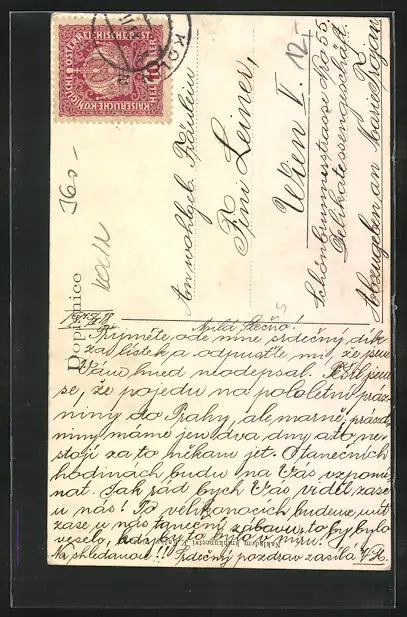 KAISERLICHE KÖNIGLICHE ÖSTERREICHISCHE POST
10 HELLER 10
KOLÍN
12-
360 -
Kolín
Dopisnice
An wohlgeb. Fräulein
Fini Leiner,
Wien V.
Schönbrunnerstrasse No 55,
Delikatessengeschäft.
Abzugeben an Marie
18
Milá slečno!
Přijměte ode mne srdečný dík
za lístek a odpusťte mi, že jsem
Vám hned neodepsal. Těšil jsem
se, že pojedu na pololetní práz-
niny do Prahy, ale marně, prázd-
niny máme jen dva dny a to ne-
stojí za to někam jet. O tanečních
hodinách budu na Vás vzpomí-
nat. Jak rád bych Vás viděl zase
u nás! Po velikonocích budeme mít
zase u nás taneční zábavu, to by bylo
veselo, kdyby to bylo v míru.
Nakladem knihkupectví
Na shledanou!!! Srdečný pozdrav zasílá